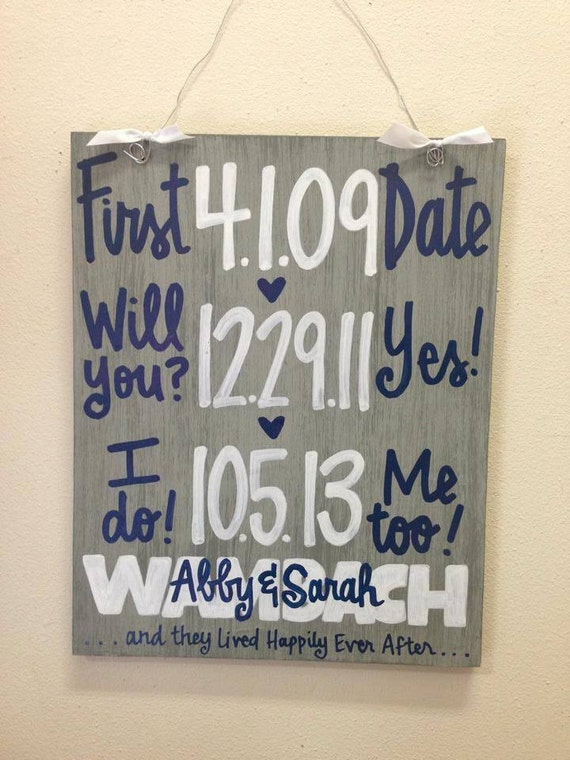 First 4.1.09 Date
Will you? 12.29.11 Yes!
I do! 10.5.13 Me too!
WAMBACH
Abby & Sarah
...and they Lived Happily Ever After...